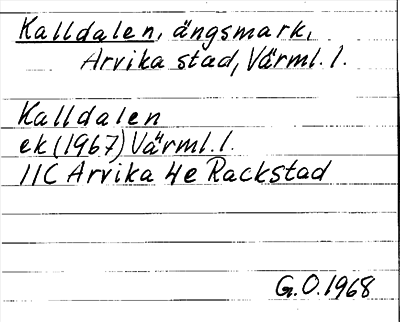 Kalldalen, ängsmark,
Arvika stad, Värml. l.
Kalldalen
ek (1967) Värml. l.
11C Arvika 4e Rackstad
G.O. 1968